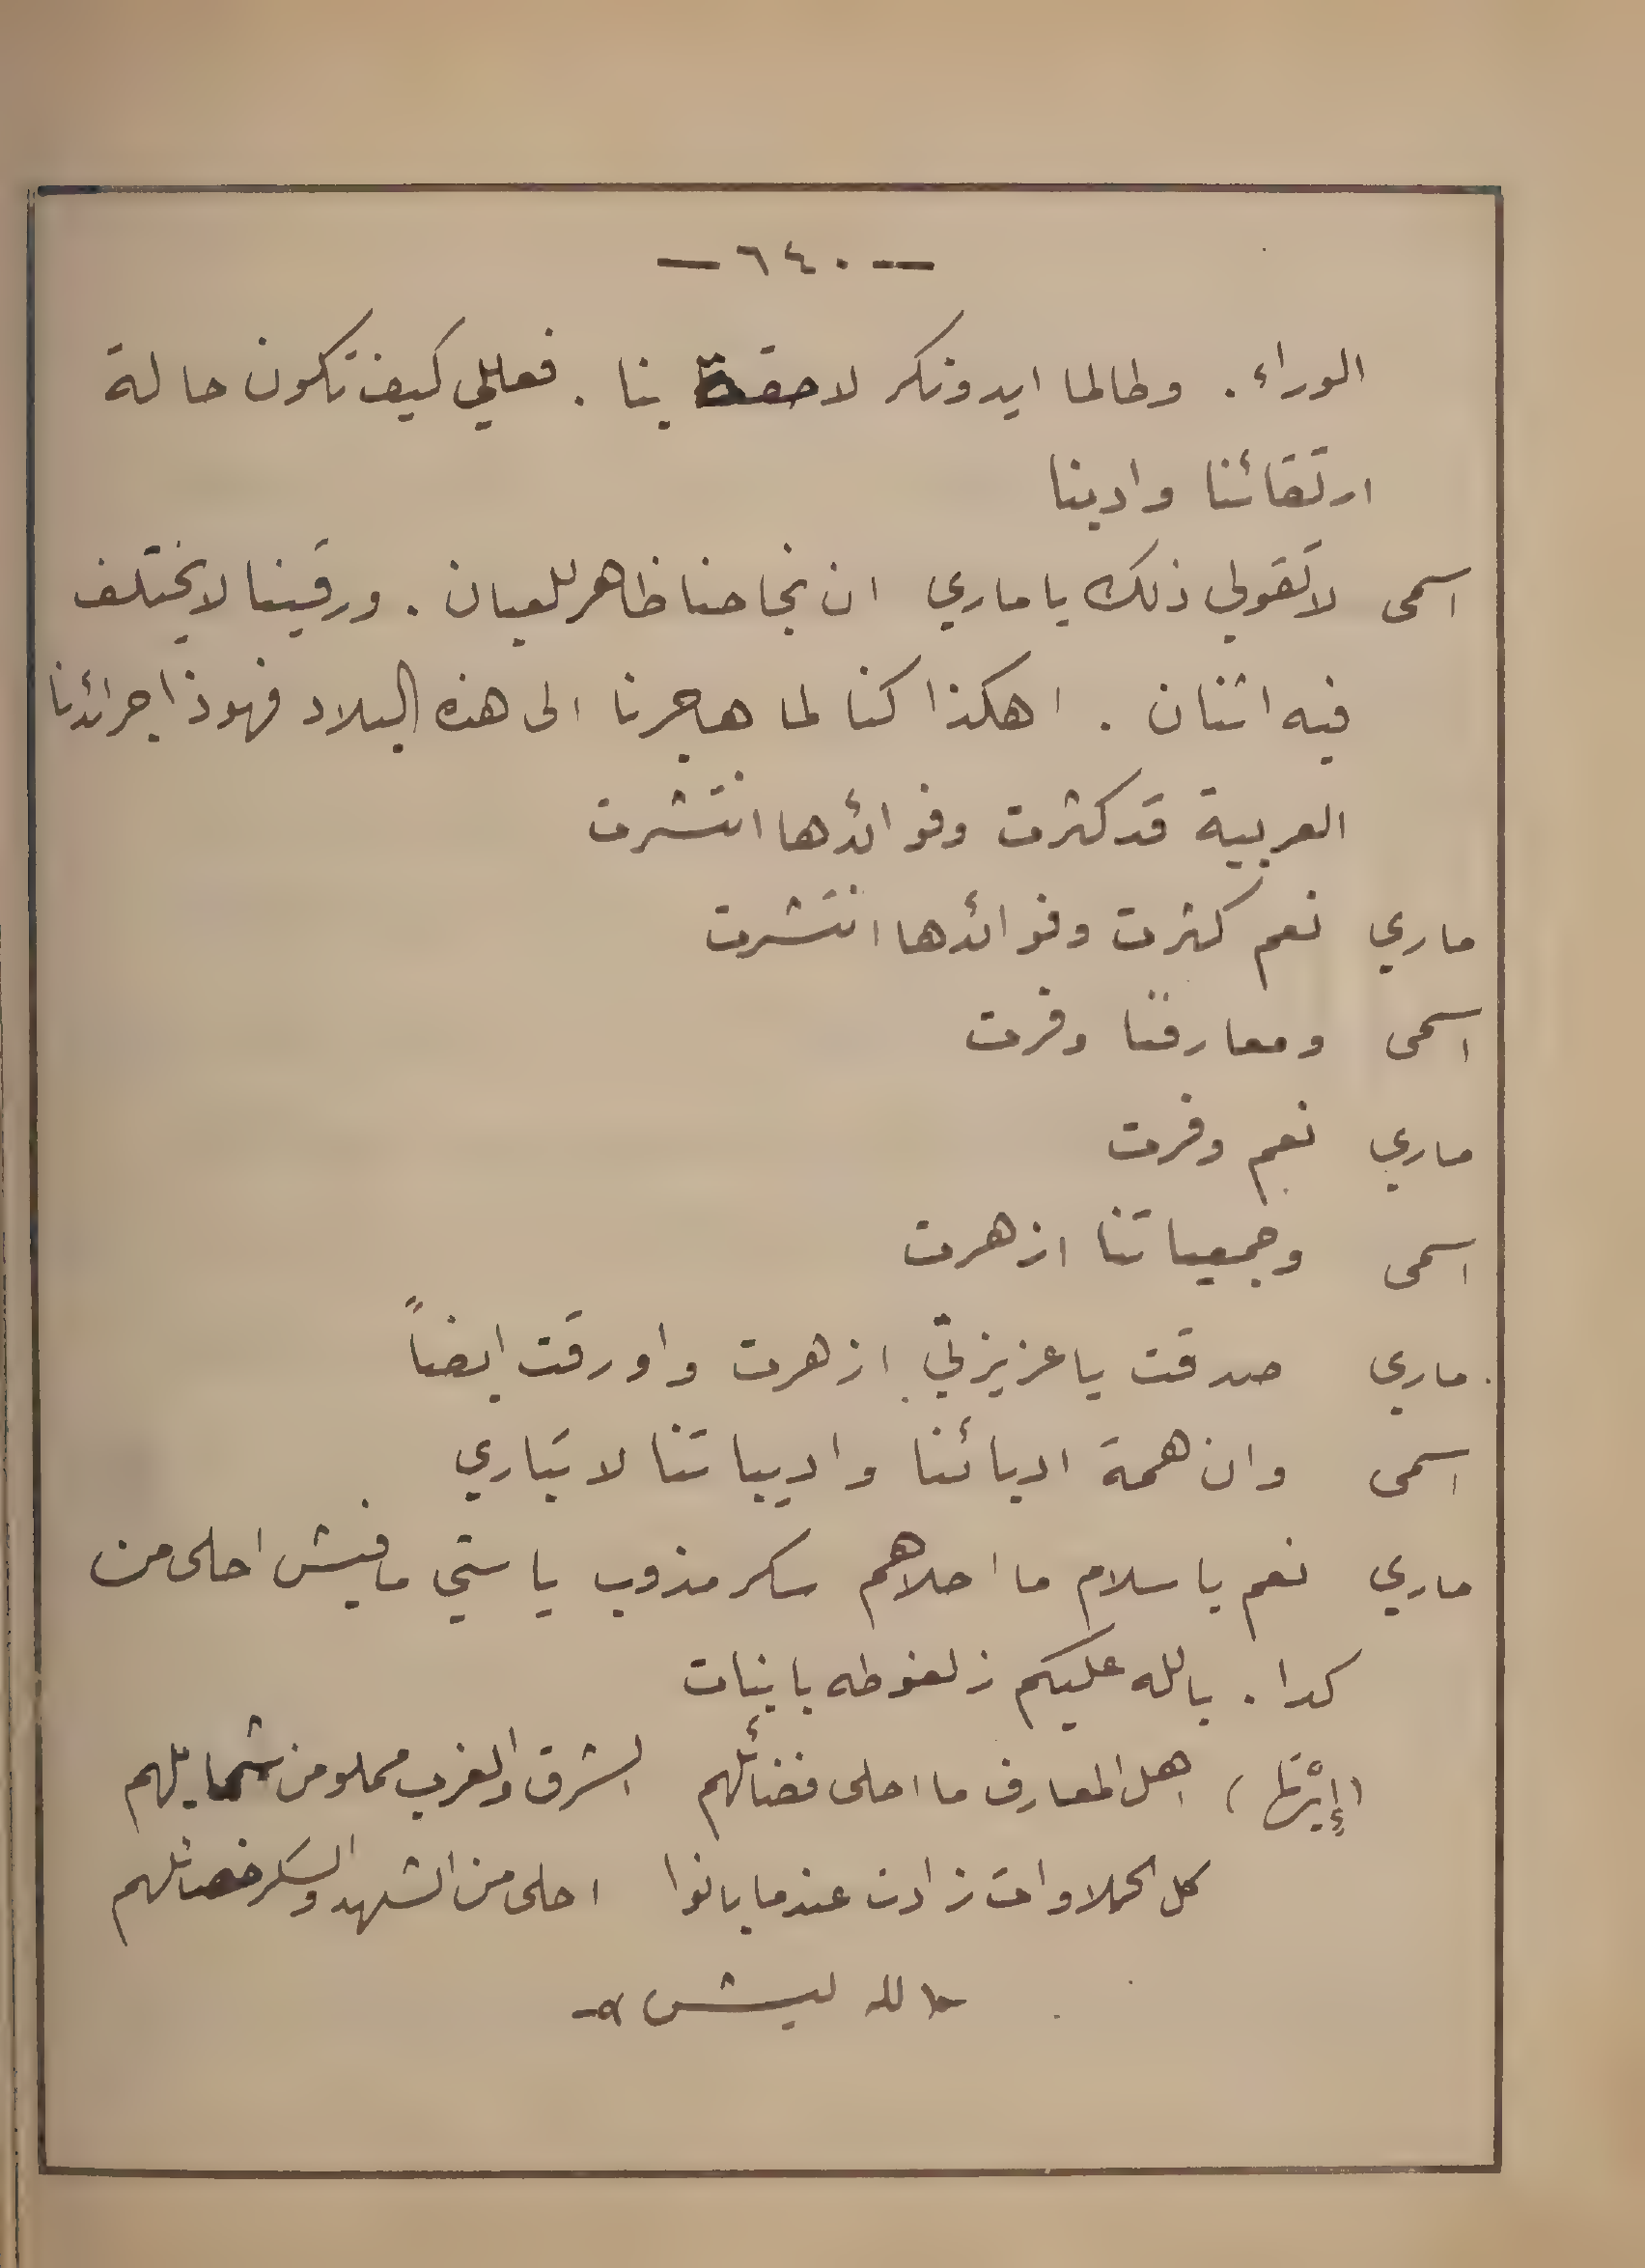 — ٦٤٠ —
الوراء . وطالما ايدونكر لاحقة بنا . فعللي كيف تكون حالة
ارتقائنا وادبنا
اسمى لا تقولي ذلك يا ماري ان نجاحنا ظاهر للعيان . ورقينا لا يختلف
فيه اثنان . اهكذا كنا لما هاجرنا الى هذه البلاد فهوذا جرائدنا
العربية قد كثرت وفوائدها انتشرت
ماري نعم كثرت وفوائدها انتشرت
اسمى ومعارفنا وفرت
ماري نعم وفرت
اسمى وجمعياتنا ازهرت
ماري صدقت يا عزيزتي ازهرت واورقت ايضاً
اسمى وان همة ادبائنا واديباتنا لا تباري
ماري نعم يا سلام ما احلاهم سكر مذوب يا ستي ما فيش احلى من
كدا . بالله عليكم زلغوطه يا بنات
(إيْرَتها) اهل المعارف ما احلى فضائلهم الشرق والغرب مملو من شمايلهم
كل الحلاوات زادت عندما بانوا احلى من الشهد والسكر خصائلهم
لله ليش